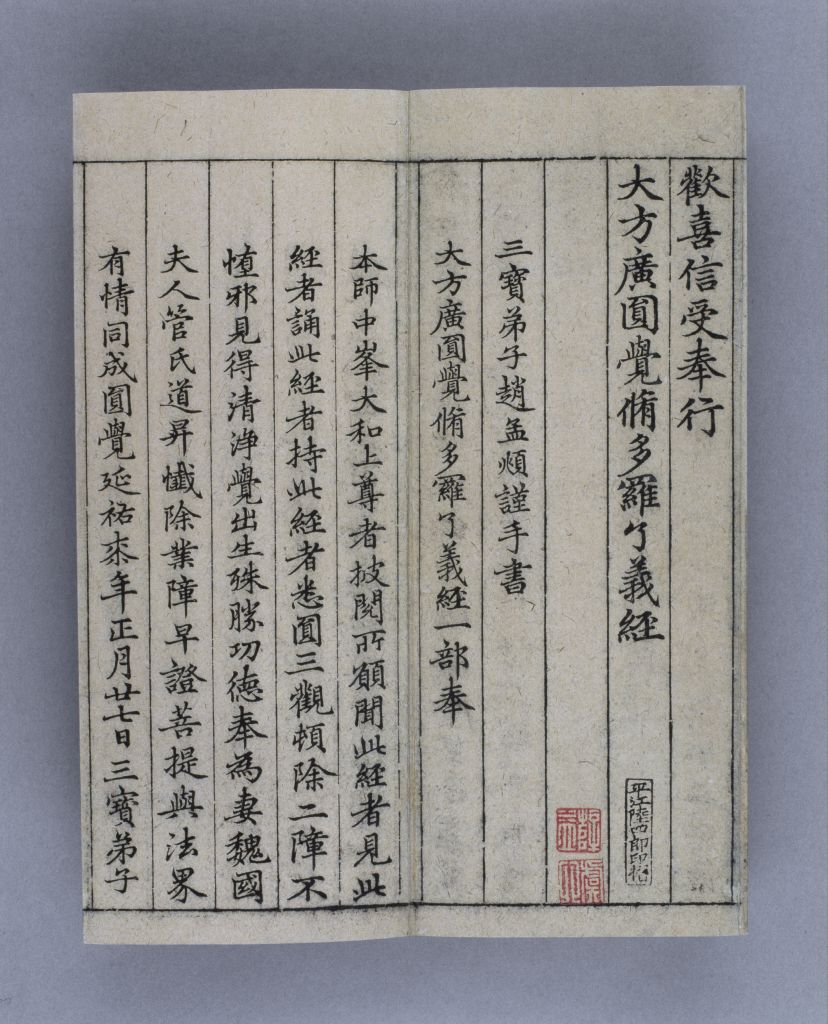 歡喜信受奉行
大方廣圓覺脩多羅了義經
三寶弟子趙孟頫謹手書
大方廣圓覺脩多羅了義經一部奉
本師中峯大和上尊者披閱所願聞此經者見此
經者誦此經者持此經者悉圓三觀頓除二障不
墮邪見得清淨覺出生殊勝功德奉為妻魏國
夫人管氏道昇懺除業障早證菩提與法界
有情同成圓覺延祐柒年正月廿七日三寶弟子